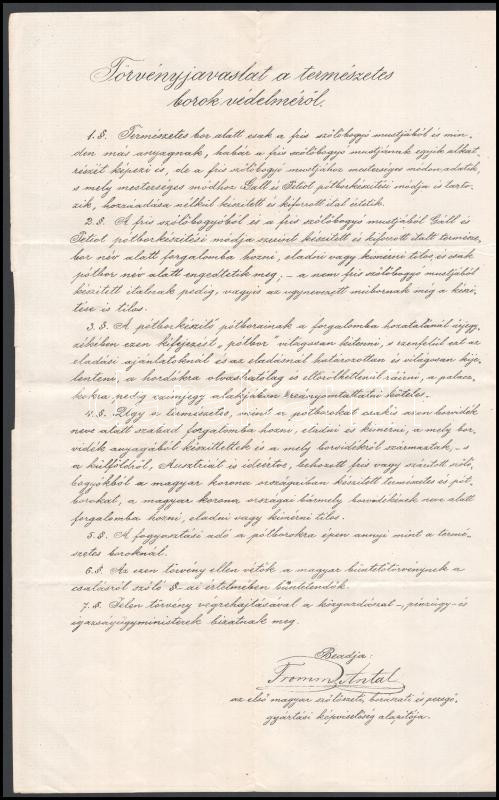 Törvényjavaslat a természetes
borok védelméről.
1. §. Természetes bor alatt csak a fris szőlőbogyó mustjából és min-
den más anyagnak, habár a fris szőlőbogyó mustjának egyik alkat-
részét képezi is, de a fris szőlőbogyó mustjához mesterséges módon adatik,
s mely mesterséges módhoz Gall és Petiol pótborkészítési módja is tarto-
zik, hozzáadása nélkül készített és kiforrott ital értetik.
2. §. A fris szőlőbogyóból és a fris szőlőbogyó mustjából Gall és
Petiol pótborkészítési módja szerint készített és kiforrott italt termesze-
bor név alatt forgalomba hozni, eladni vagy kimérni tilos, és csak
pótbor név alatt engedtetik meg, – a nem fris szőlőbogyó mustjából
készített italnak pedig, vagyis az úgynevezett műbornak még a kész-
tése is tilos.
3. §. A pótborkészítő pótborainak a forgalomba hozatalánál
ezen kifejezést „pótbor" világosan kitenni, s ezenfelül ezt az
eladási ajánlatoknál és az eladásnál határozottan és világosan kij-
lenteni, a hordókra olvashatólag és eltörölhetlenül ráírni, a palacz-
kokra pedig vagy alakjában reányomtatni köteles.
4. §. Úgy a természetes, mint a pótborokat csakis azon borvidék
neve alatt szabad forgalomba hozni, eladni és kimérni, a mely bor-
vidék anyagából készíttettek és a mely borvidékről származtak, – s
a külföldről, Ausztriát is ideértve, behozott fris vagy szárított szőlő-
bogyókból a magyar korona országaiban készített természetes és pót-
borokat, a magyar korona országai bármely borvidékének neve alatt
forgalomba hozni, eladni vagy kimérni tilos.
5. §. A fogyasztási adó a pótborokra épen annyi mint a termé-
szetes boroknál.
6. §. Az ezen törvény ellen vétők a magyar büntetőtörvénynek a
csalásról szóló §-ai értelmében büntetendők.
7. §. Jelen törvény végrehajtásával a közgazdászat-, pénzügy- és
igazságügyministerek bizatnak meg.
Beadja:
Fromm Antal
az első magyar szőlészeti, borászati és pezsgő-
gyártási képviselőség alapítója.